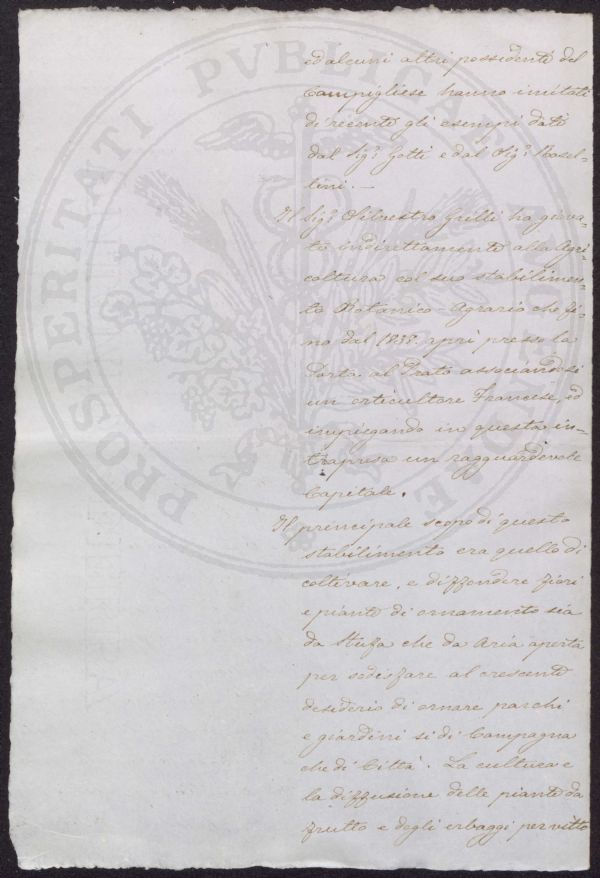 ed alcuni altri possidenti del
Campigliese hanno imitati
di recente gli esempi dati
dal Sig.r Gotti e dal Sig.r Rosel-
lini. —
Il Sig.r Silvestro Grilli ha giova-
to indirettamente alla Agri-
coltura col suo stabilimen-
to Botanico-Agrario che fi-
no dal 1838. aprì presso la
Porta al Prato associandosi
un orticultore Francese, ed
impiegando in questa in-
trapresa un ragguardevole
Capitale.
Il principale scopo di questo
stabilimento era quello di
coltivare, e diffondere fiori
e piante di ornamento sia
da Stufa che da Aria aperta
per sodisfare al crescente
desiderio di ornare parchi
e giardini sì di Campagna
che di Città. La cultura e
la diffusione delle piante da
frutto e degli erbaggi per vitto
PROSPERITATI PVBLICAE AVGENDAE